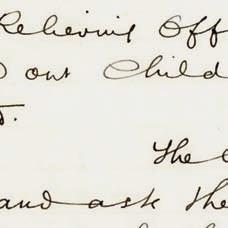 Relieving Off
out Child
The
and ask the